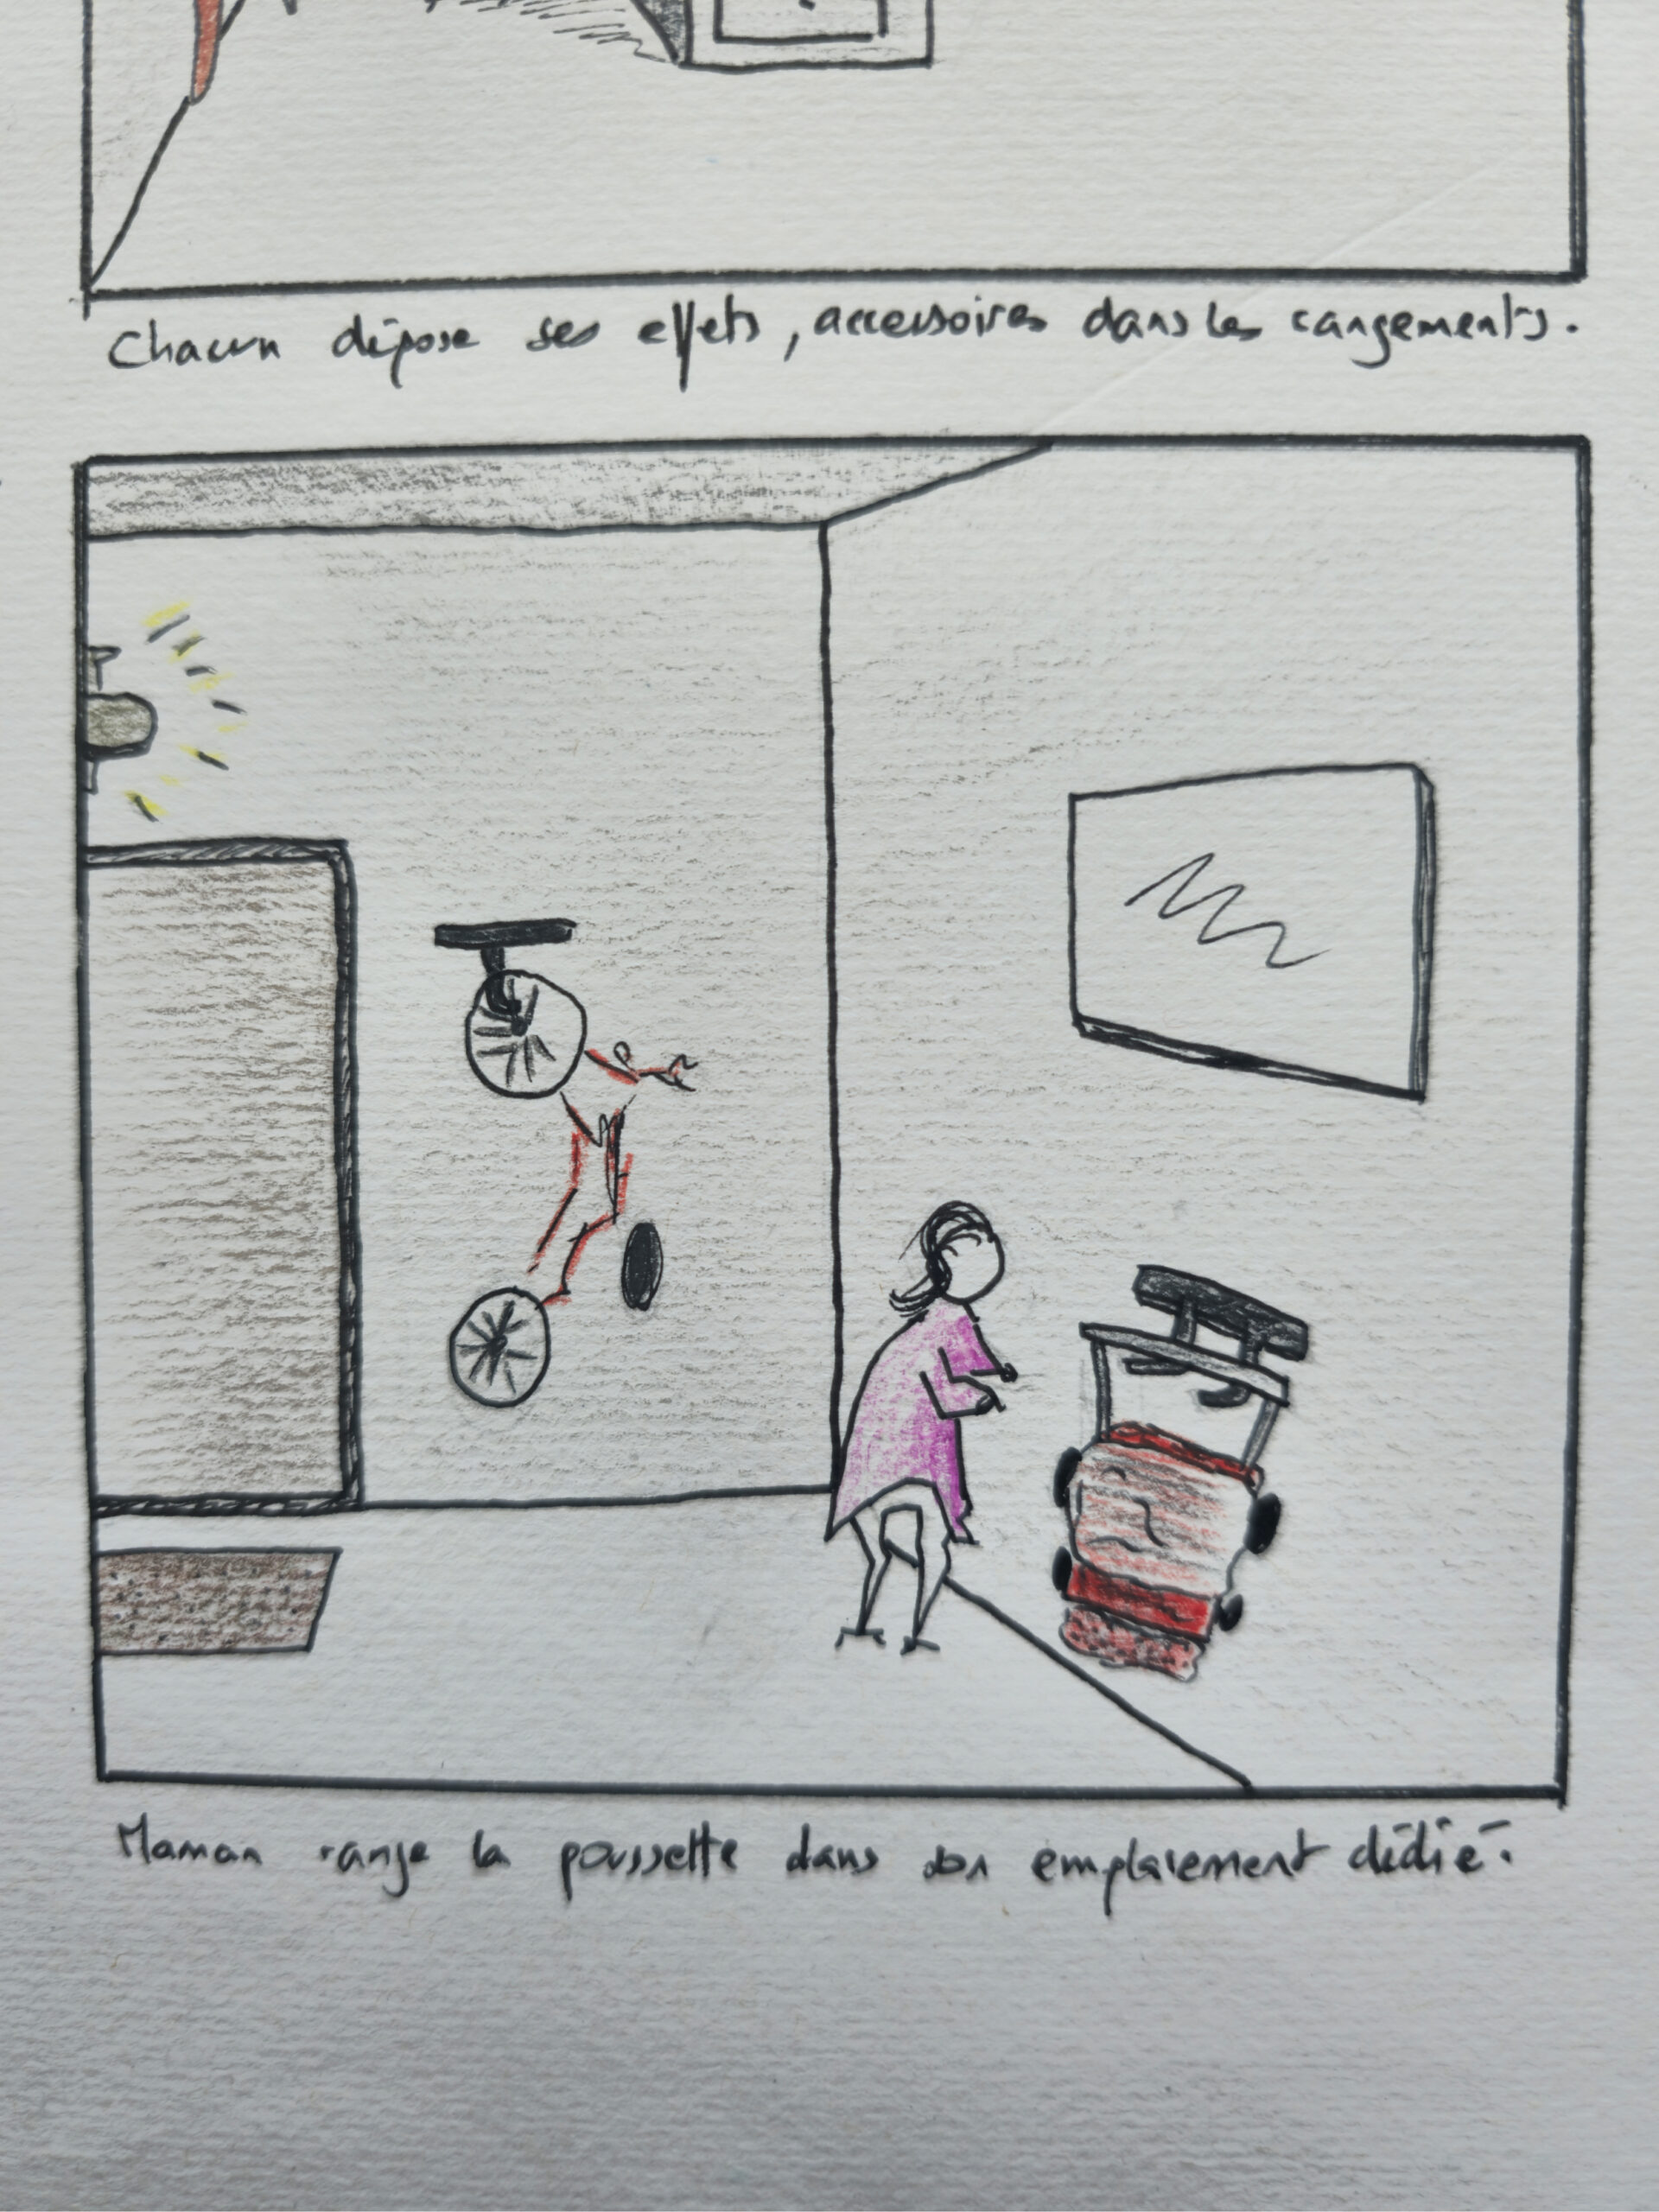 Chacun dépose ses effets, accessoires dans les rangements.
Maman range la poussette dans son emplacement dédié.